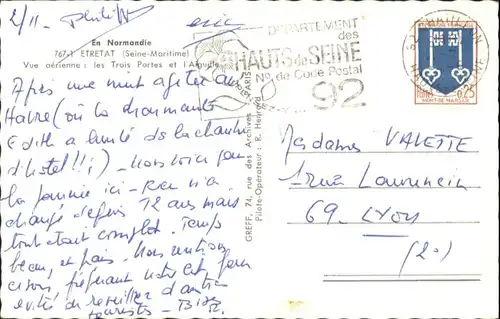 2/11 -
Philipp
eric
En Normandie
767-1 ETRETAT (Seine-Maritime)
Vue aérienne : les Trois Portes et l'Aiguille
DÉPARTEMENT
des
HAUTS de SEINE
No. de Code Postal
92
RÉPUBLIQUE FRANÇAISE
POSTES 0,25
MONT-DE-MARSAN
GREFF, 74, rue des Archives - PARIS
Pilote-Opérateur : R. Henrard
Après une nuit agitée au
Havre (où la charmante
Edith a hérité de la chambre
d'hotel !!;) - nous voici pour
la journée ici - Rien n'a
changé depuis 12 ans mais
tout étant complet. Temps
beau, et frais. Nous
préférant
éviter de réveiller d'autres
touristes - Bises
Mesdames VALETTE
1 rue Laurencin
69. LYON
(2°)